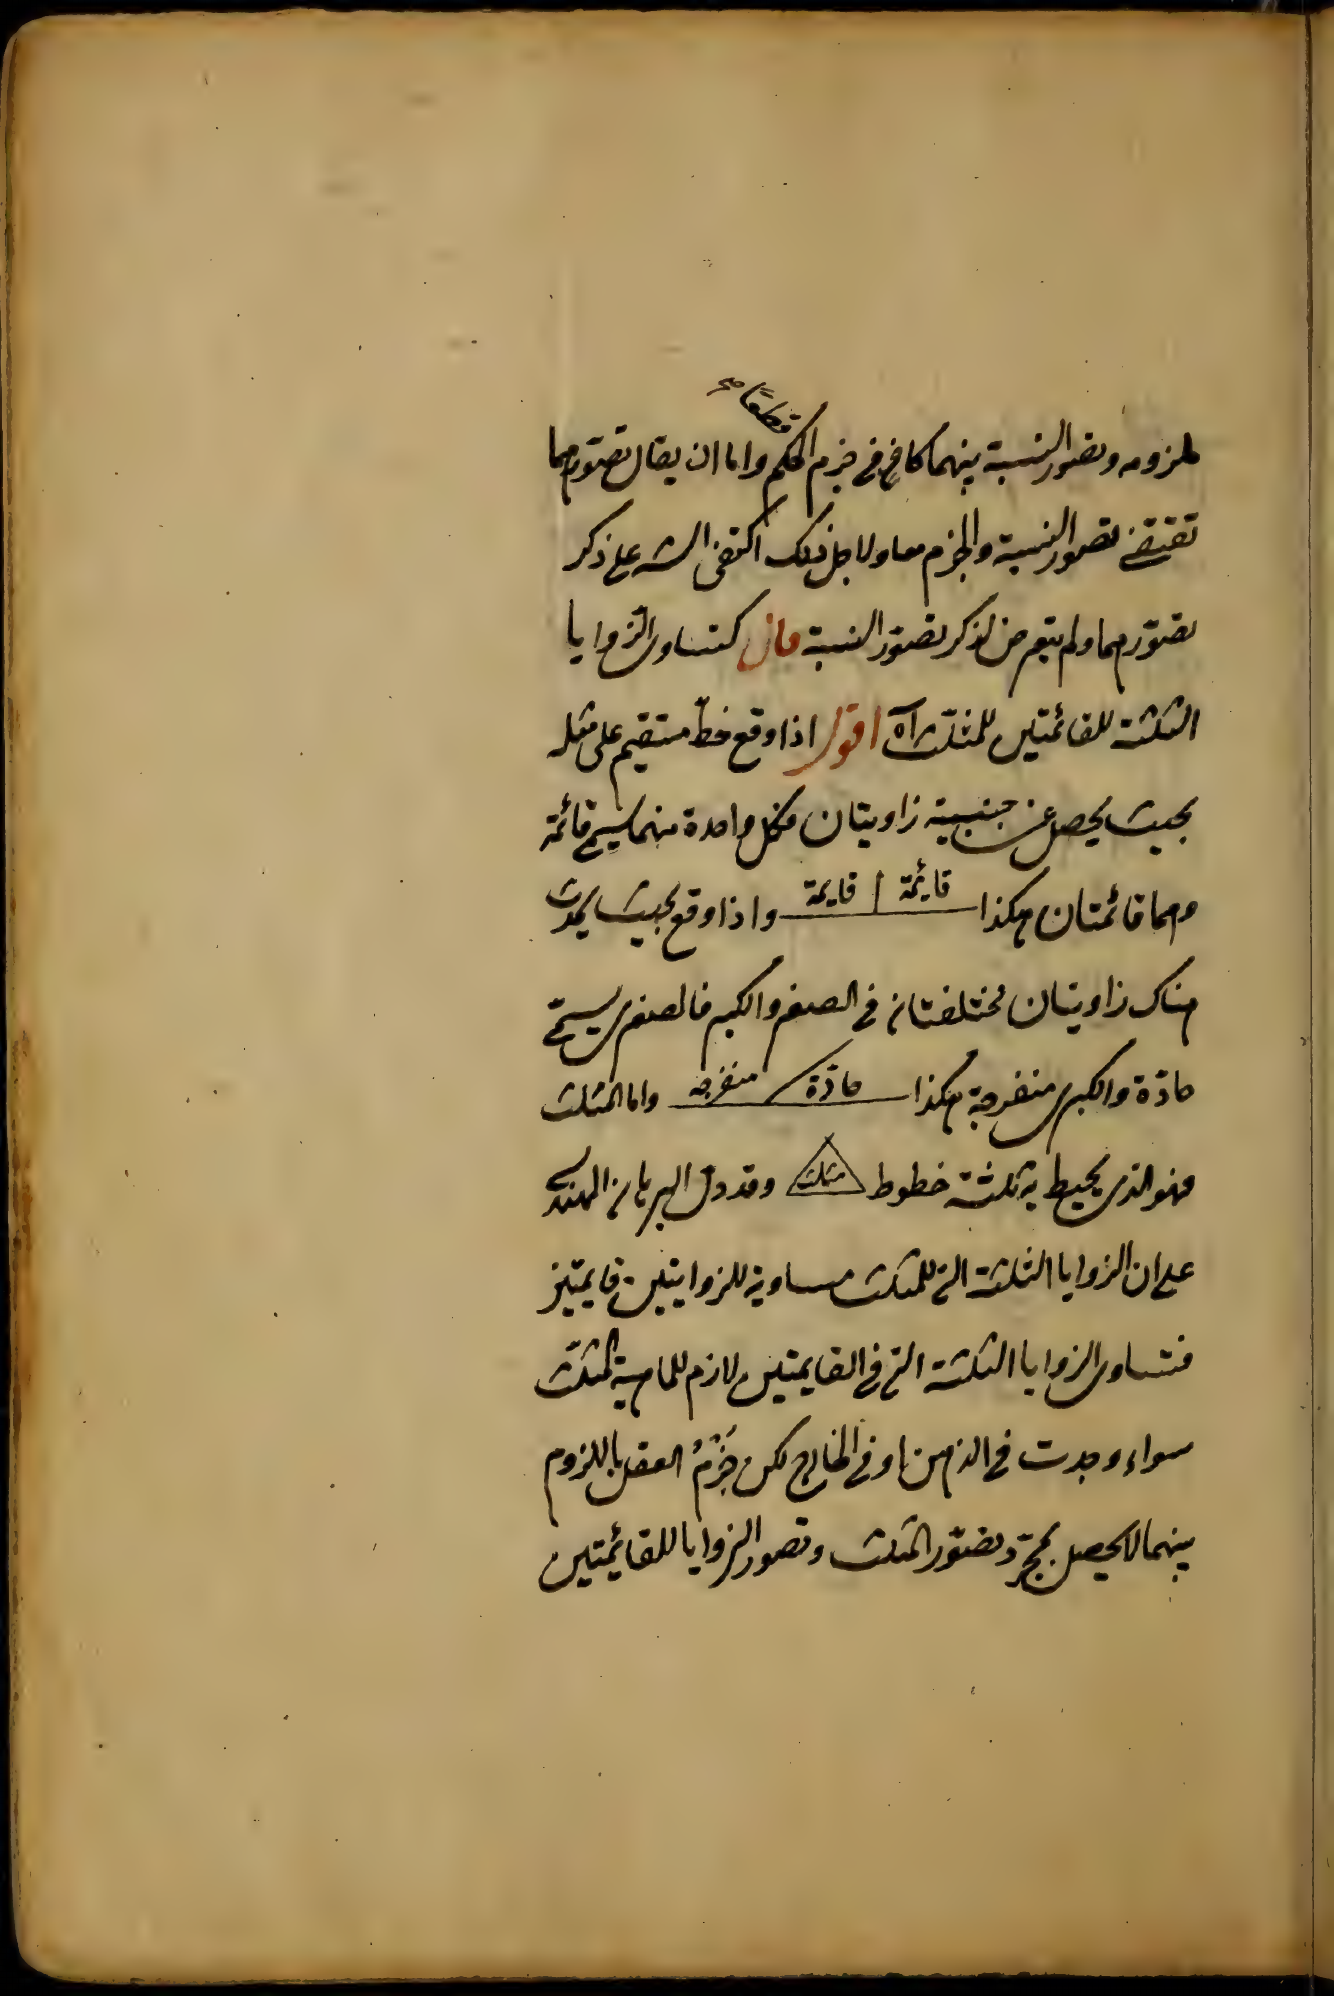 قطعًا صح
ملزومه وتصور النسبة بينهما كاف في جزم الحكم واما ان يقال تصورهما
تقتضے تصور النسبة والجزم معا ولاجل ذلك اكتفى الشه على ذكر
تصوّرهما ولم يتعرض لذكر تصوّر النسبة قال كتساوى الزوايا
الثلثة للقائمتين للمثلّث آه اقول اذا وقع خطّ مستقيم على مثله
بحيث يحصل عن جنبيه زاويتان فكل واحدة منهما يسمى قائمة
وهما قائمتان هكذا قائمة قايمة واذا وقع بحيث يحدث
هناك زاويتان مختلفتان في الصغر والكبر فالصغرى يسمّى
حادّة والكبرى منفرجة هكذا حادّة منفرجه واما المثلث
فهو الذى يحيط به ثلثة خطوط مثلث وقد دل البرهان الهندسى
على ان الزوايا الثلثة التي للمثلث مساوية للزوايتين قايمتين
فتساوى الزوايا الثلثة التي في القايمتين لازم للماهية المثلّث
سواء وجدت في الذهن او في الخارج لكن جَزْمُ العقل باللزوم
بينهما لا يحصل بمجرّد تصوّر المثلث وتصور الزوايا للقائمتين